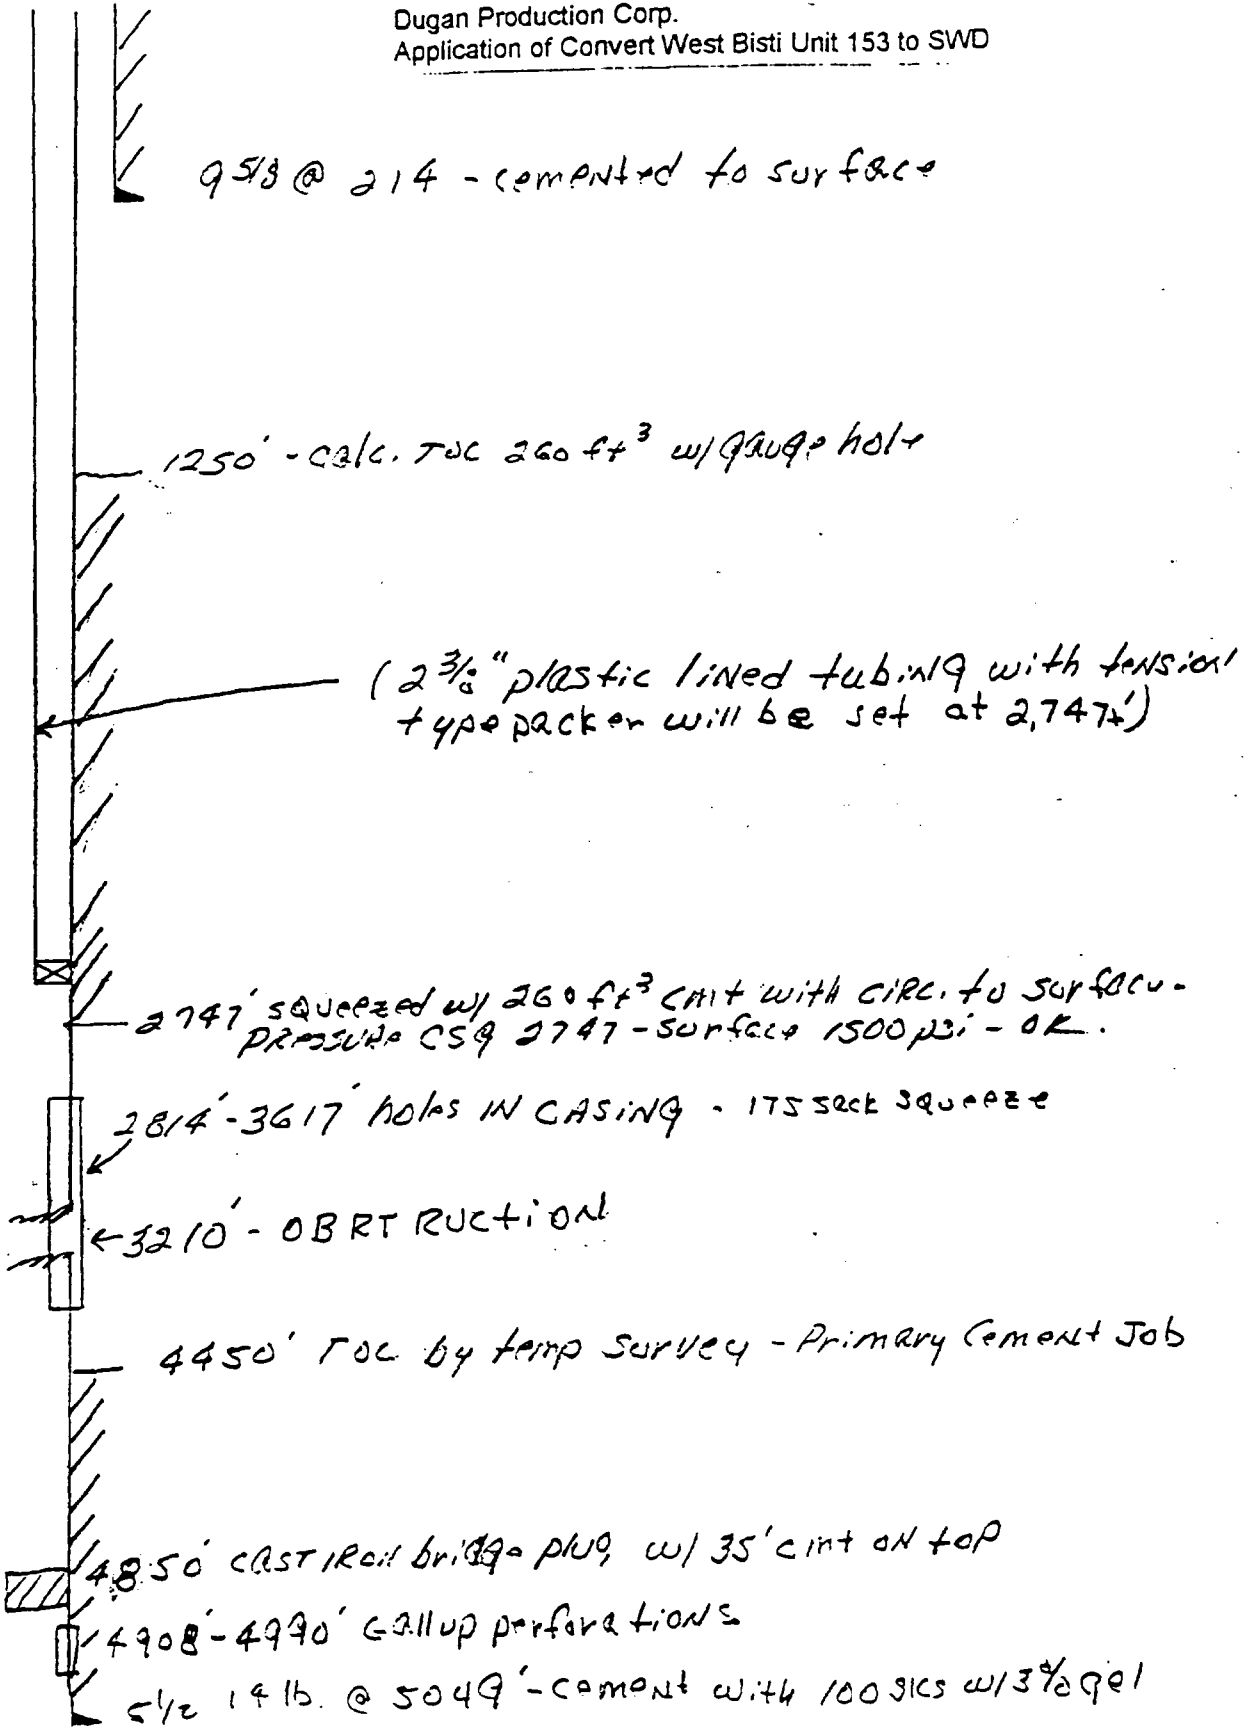 Dugan Production Corp.
Application of Convert West Bisti Unit 153 to SWD
9 5/8 @ 214 - cemented to surface
1250' - calc. TOC 260 ft³ w/ gauge hole
(2 3/8" plastic lined tubing with tension
type packer will be set at 2,747±')
2747' squeezed w/ 260 ft³ cmt with circ. to surface -
PRESSURE CSG 2747 - surface 1500 psi - OK.
2814' - 3617' holes IN CASING - 175 sack squeeze
3210' - OBRTRUCTION
4450' TOC by temp survey - Primary Cement Job
4850' CAST IRON bridge plug w/ 35' cmt on top
4908' - 4990' Gallup perforations
5 1/2 14 lb. @ 5049' - cement with 100 sks w/ 3% gel